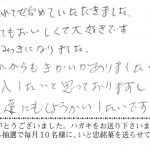 れて始めていただきました。
てもおいしくて大好きです
みつきになりました。
れからもきかいがありましたら
入したいと思っておりますし
達にもしょうかいしたいです
がとうございました。ハガキをお送り下さいま
抽選で毎月10名様に、いと忠銘菓を送らせて